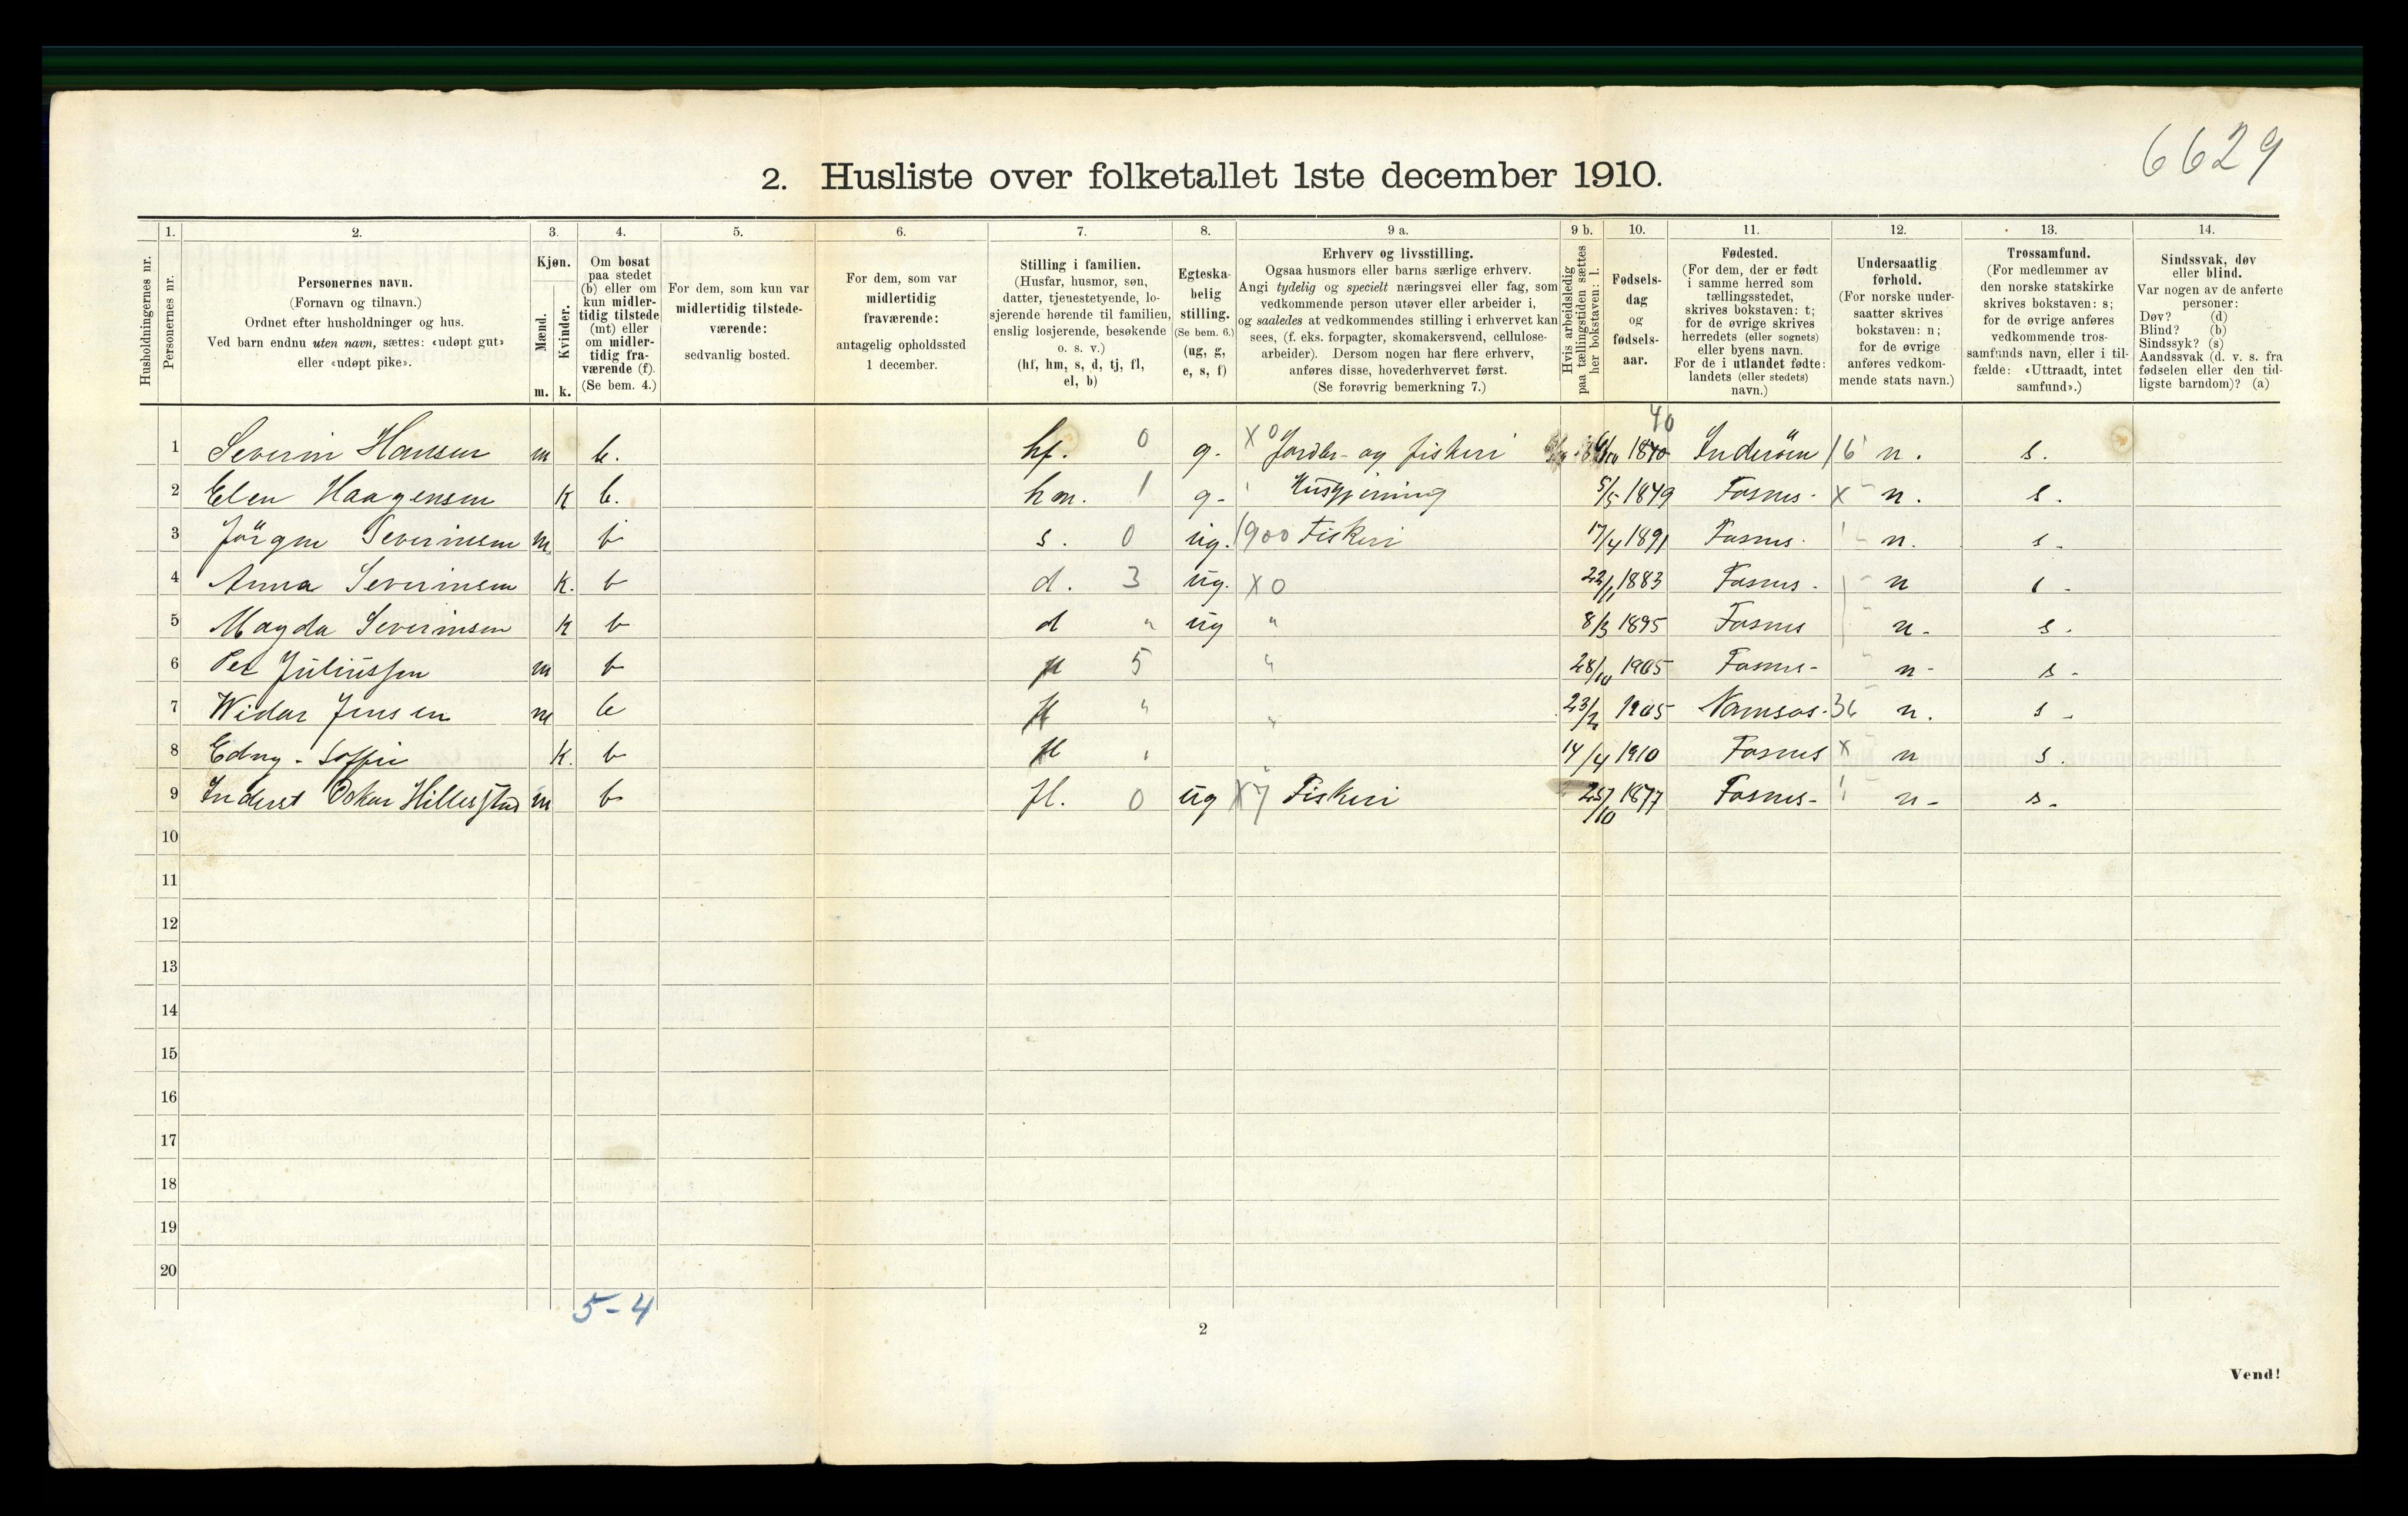 6629
2. Husliste over folketallet 1ste december 1910.
1. 2. 3. 4. 5. 6. 7. 8. 9 a. 9 b. 10. 11. 12. 13. 14.
Husholdningernes nr.
Personernes nr.
Personernes navn.
(Fornavn og tilnavn.)
Ordnet efter husholdninger og hus.
Ved barn endnu uten navn, sættes: «udøpt gut»
eller «udøpt pike».
Kjøn.
Mænd.
Kvinder.
m. k.
Om bosat
paa stedet
(b) eller om
kun midler-
tidig tilstede
(mt) eller
om midler-
tidig fra-
værende (f).
(Se bem. 4.)
For dem, som kun var
midlertidig tilstede-
værende:
sedvanlig bosted.
For dem, som var
midlertidig
fraværende:
antagelig opholdssted
1 december.
Stilling i familien.
(Husfar, husmor, søn,
datter, tjenestetyende, lo-
sjerende hørende til familien,
enslig losjerende, besøkende
o. s. v.)
(hf, hm, s, d, tj, fl,
el, b)
Egteska-
belig
stilling.
(Se bem. 6.)
(ug, g,
e, s, f)
Erhverv og livsstilling.
Ogsaa husmors eller barns særlige erhverv.
Angi tydelig og specielt næringsvei eller fag, som
vedkommende person utøver eller arbeider i,
og saaledes at vedkommendes stilling i erhvervet kan
sees, (f. eks. forpagter, skomakersvend, cellulose-
arbeider). Dersom nogen har flere erhverv,
anføres disse, hovederhvervet først.
(Se forøvrig bemerkning 7.)
Hvis arbeidsledig
paa tællingstiden sættes
her bokstaven: l.
Fødsels-
dag
og
fødsels-
aar.
Fødested.
(For dem, der er født
i samme herred som
tællingsstedet,
skrives bokstaven: t;
for de øvrige skrives
herredets (eller sognets)
eller byens navn.
For de i utlandet fødte:
landets (eller stedets)
navn.)
Undersaatlig
forhold.
(For norske under-
saatter skrives
bokstaven: n;
for de øvrige
anføres vedkom-
mende stats navn.)
Trossamfund.
(For medlemmer av
den norske statskirke
skrives bokstaven: s;
for de øvrige anføres
vedkommende tros-
samfunds navn, eller i til-
fælde: «Uttraadt, intet
samfund».)
Sindssvak, døv
eller blind.
Var nogen av de anførte
personer:
Døv? (d)
Blind? (b)
Sindssyk? (s)
Aandssvak (d. v. s. fra
fødselen eller den tid-
ligste barndom)? (a)
40
1 Severin Hansen m b. hf. 0 g. X0 Jordbr- og fiskeri 1840 Inderöen 16 n. s.
2 Elen Haagensen K b. hm. 1 g- Husgjerning 5/5 1849 Fosnes. X n. s.
3 Jörgen Severinsen m. b s. 0 ug. 1900 Fiskeri 17/4 1891 Fosnes. n. s.
4 Anna Severinsen K. b d. 3 ug. X0 22/11 1883 Fosnes. n s.
5 Magda Severinsen K b d " ug " 8/3 1895 Fosnes n- s.
6 Per Juliussen m b fl 5 " 28/10 1905 Fosnes- n- s-
7 Widar Jensen m b fl " " 23/2 1905 Namsos. 36 n. s-
8 Edny- Soffie K. b fl " 14/4 1910 Fosnes X n s.
9 Inderst Oskar Hillerstad m b fl. 0 ug X7 Fiskeri 25/10 1877 Fosnes- n- s.
10
11
12
13
14
15
16
17
18
19
20
5-4
2
Vend!